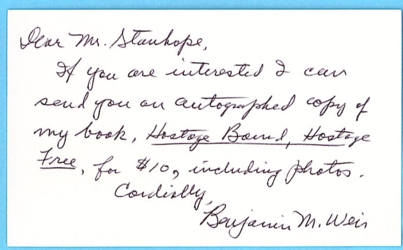 Dear Mr. Stanhope,
If you are interested I can
send you an autographed copy of
my book, Hostage Bound, Hostage
Free, for $10, including photos.
Cordially,
Benjamin M. Weir